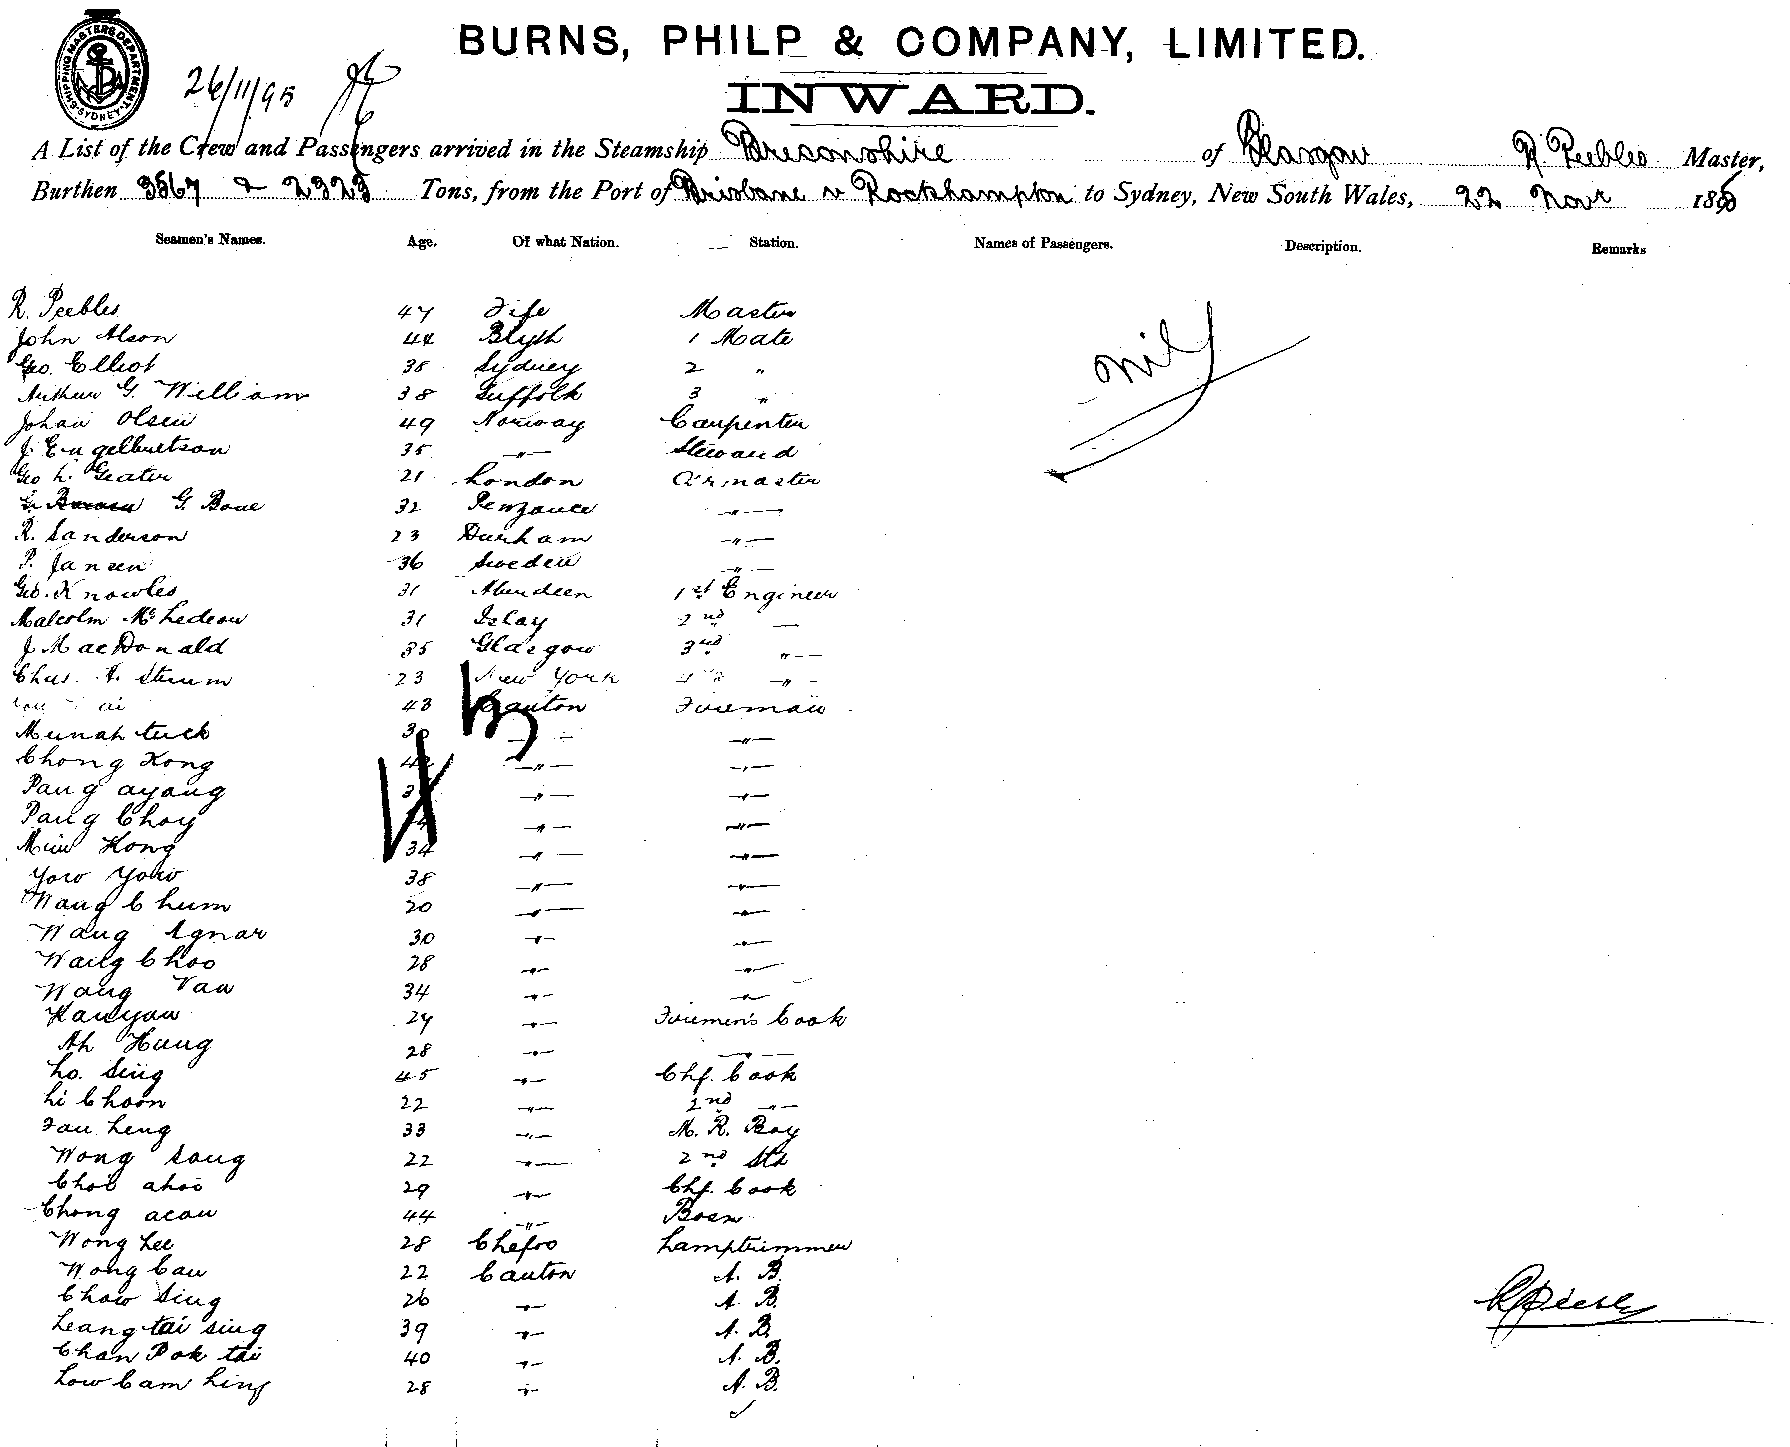 BURNS, PHILP & COMPANY, LIMITED.
SHIPPING MASTERS DEPARTMENT. SYDNEY
26/11/95
INWARD.
A List of the Crew and Passengers arrived in the Steamship Breconshire of Glasgow R. Peebles Master,
Burthen 3567 & 2325 Tons, from the Port of Brisbane v Rockhampton to Sydney, New South Wales, 22 Novr 1895
Seamen's Names. Age. Of what Nation. Station. Names of Passengers. Description. Remarks
R. Peebles 47 Fife Master
nil
John Olson 44 Blyth 1 Mate
Geo. Elliot 38 Sydney 2 "
Arthur G. William 38 Suffolk 3 "
Johan Olsen 49 Norway Carpenter
J. Engelbretson 35 —"— Steward
Geo L. Geater 21 London Qrmaster
G. Bone 32 Penzance —"—
R. Sanderson 23 Durham —"—
P. Jansen 36 Sweden —"—
Geo. Knowles 31 Aberdeen 1st Engineer
Malcolm Mc Ledeow 31 Islay 2nd —
J MacDonald 35 Glasgow 3rd "—
Chas. A. Sturm 23 New York —"—
43 Canton Fireman
Munah tuck 30 —"— —"—
Chong Kong —"— —"—
Pang ayang —"— —"—
Pang Choy —"— —"—
Miu Kong 34 —"— —"—
Yow Yow 38 —"— —"—
Wang Chum 20 —"— —"—
Wang Agnar 30 —"— —"—
Wang Choo 28 —"— —"—
Wang Van 34 —"— —"—
Kanyau 24 —"— Firemen's Cook
Ah Hung 28 —"— —"—
Lo. Sing 45 —"— Chf. Cook
Li Choon 22 —"— 2nd —"—
Fau Leng 33 —"— M. R. Boy
Wong Sang 22 —"— 2nd Std
Choi ahoi 29 —"— Chf. Cook
Chong acau 44 —"— Bosn
Wong Lee 28 Chefoo Lamptrimmer
Wong Cau 22 Canton A. B.
Chow Sing 26 —"— A. B.
Leang tai sing 39 —"— A. B.
Chan Pok tai 40 —"— A. B.
Low Cam Ling 28 —"— A. B.